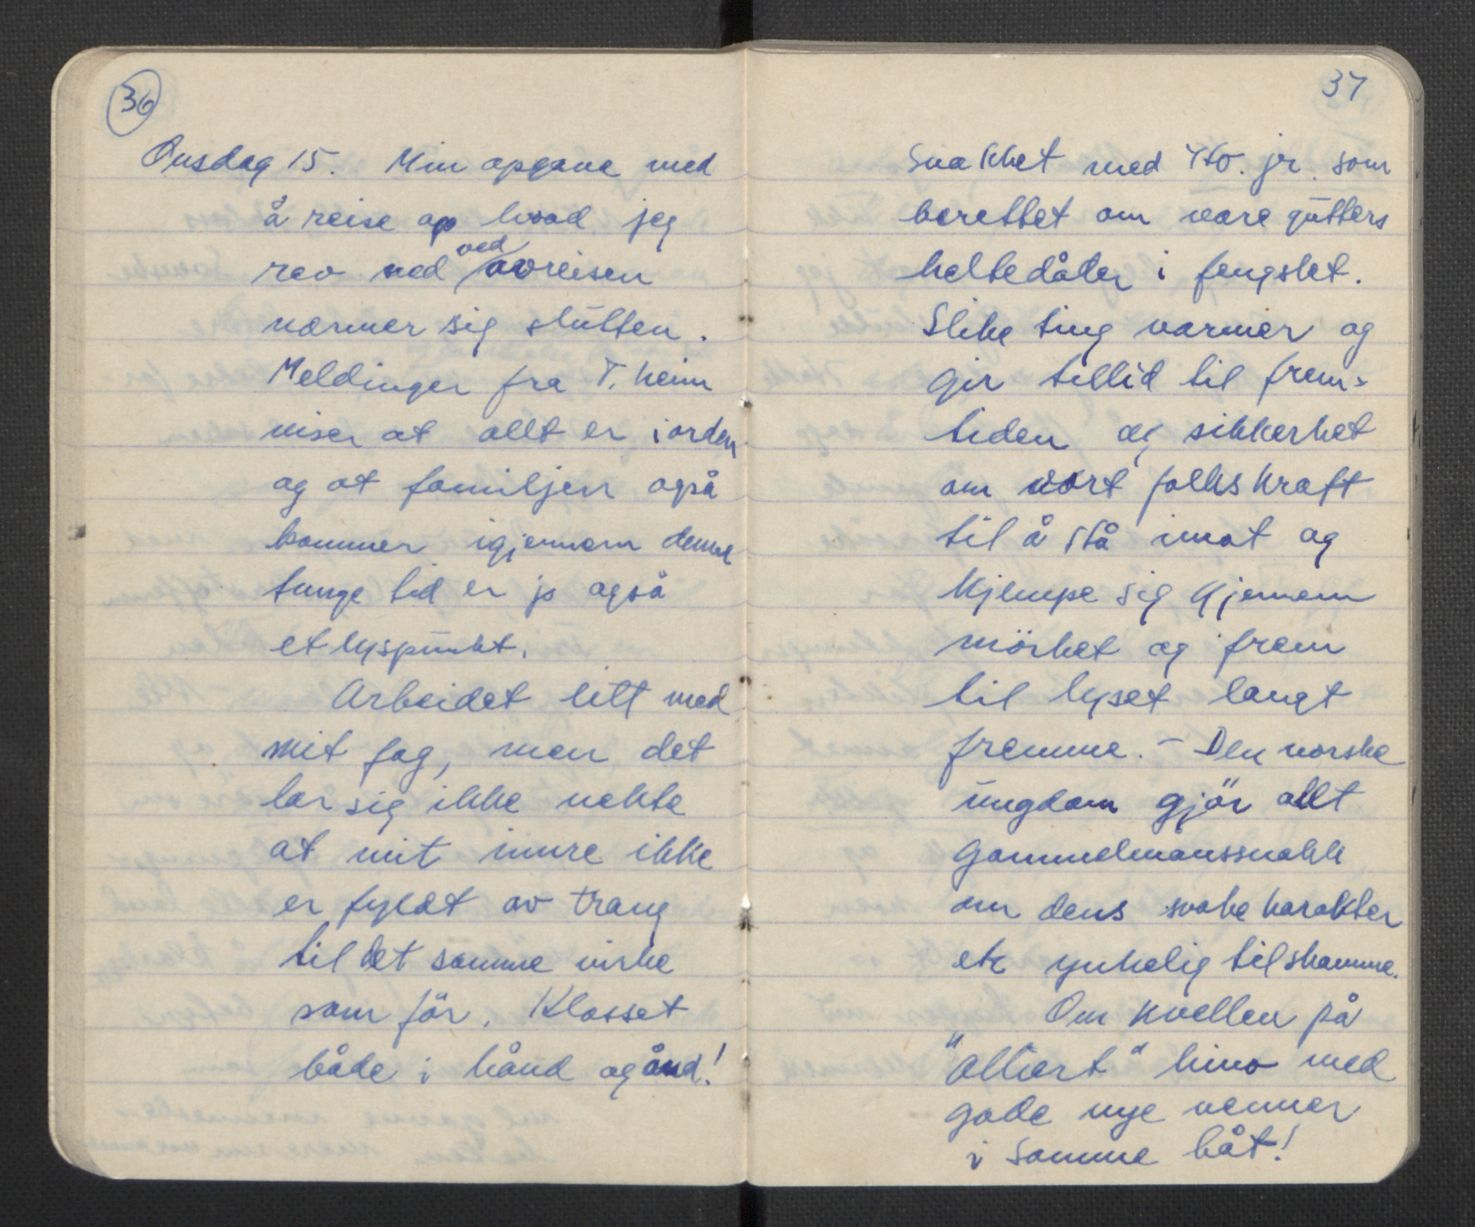 36
Onsdag 15. Min opgave med
å reise op hvad jeg
rev ned ved avreisen
nærmer sig slutten.
Meldinger fra T. heim
viser at allt er iorden
og at familjen også
kommer igjennem denne
tunge tid er jo også
et lyspunkt.
Arbeidet litt med
mit fag, men det
lar sig ikke nekte
at mit innre ikke
er fyldt av trang
til det samme virke
som för. Klosset
både i hånd og ånd!
37
Snakket med jr. som
berettet om vore gutters
heltedåder i fengslet.
Slike ting varmer og
gir tillid til frem-
tiden og sikkerhet
om vort folks kraft
til å stå imot og
kjempe sig gjennem
mörket og frem
til lyset langt
fremme. - Den norske
ungdom gjör allt
gammelmanssnakk
om dens svake karakter
etc ynkelig tilskamme.
Om kvellen på
"Alliert" kino med
gode nye venner
i samme båt!